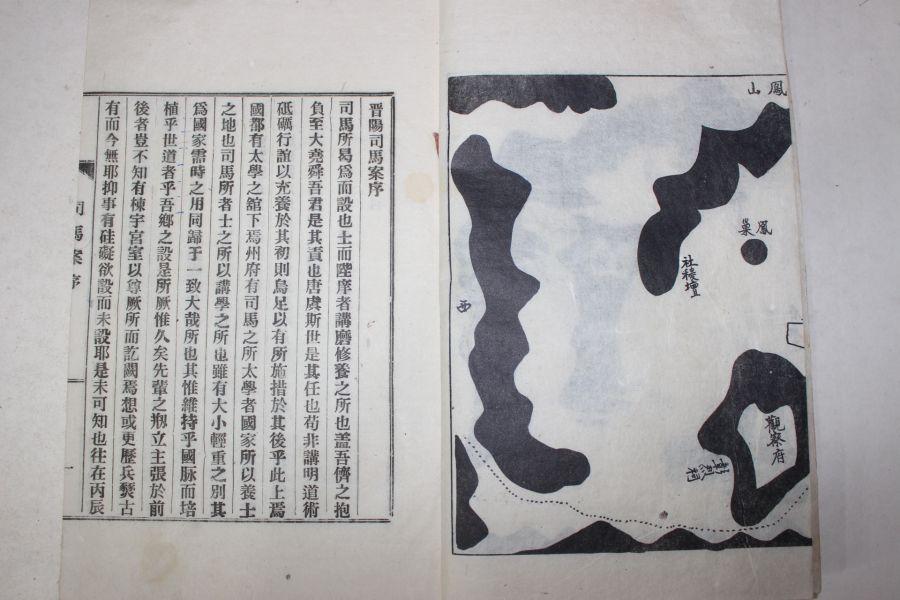 鳳山
鳳巢
社稷壇
西
觀察府
彰烈祠
晋陽司馬案序
司馬所曷爲而設也士而陞庠者講磨修養之所也盖吾儕之抱
負至大堯舜吾君是其責也唐虞斯世是其任也苟非講明道術
砥礪行誼以充養於其初則烏足以有所施措於其後乎此上焉
國都有太學之舘下焉州府有司馬之所太學者國家所以養士
之地也司馬所者士之所以講學之所也雖有大小輕重之別其
爲國家需時之用同歸于一致大哉所也其惟維持乎國脉而培
植乎世道者乎吾鄕之設是所厥惟久矣先輩之刱立主張於前
後者豈不知有棟宇宮室以尊厥所而訖闕焉想或更歷兵燹古
有而今無耶抑事有硅礙欲設而未設耶是未可知也往在丙辰
司馬案序
一